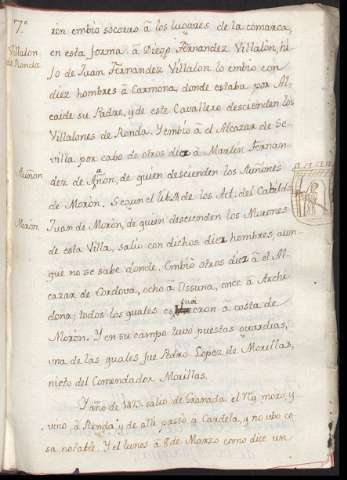 7.º
rón embió socorro à los lugares de la comarca,
Villalon de Ronda.
en esta forma à Diego Fernandez Villalon, hi-
jo de Juan Fernandez Villalon lo embió con
diez hombres à Carmona, donde estaba por Al-
caide su Padre, y de este Cavallero descienden los
Villalones de Ronda. Y embió à el Alcazar de Se-
villa por cabo de otros diez à Martin Fernan-
Auñon
dez de Auñon, de quien descienden los Auñones
de Morón. Segun el de los Act. del Cabildo
Morón
Juan de Morón, de quien descienden los Morones
de esta Villa, salio con dichos diez hombres, aun-
que no se sabe donde. Embió otros diez à el Al-
cazar de Cordova, ocho à Ossuna, once à Archi-
dona; todos los quales à costa de
Morón. Y en su campo llevó puestas guardias,
una de las quales fue Pedro Lopez de Morillas,
nieto del Comendador Morillas.
Y año de salió de Granada el Rey moro, y
vino à Ronda, y de alli pasó à Cardela, y no ubo co-
sa notable. Y el lunes à 8 de Marzo como dice un